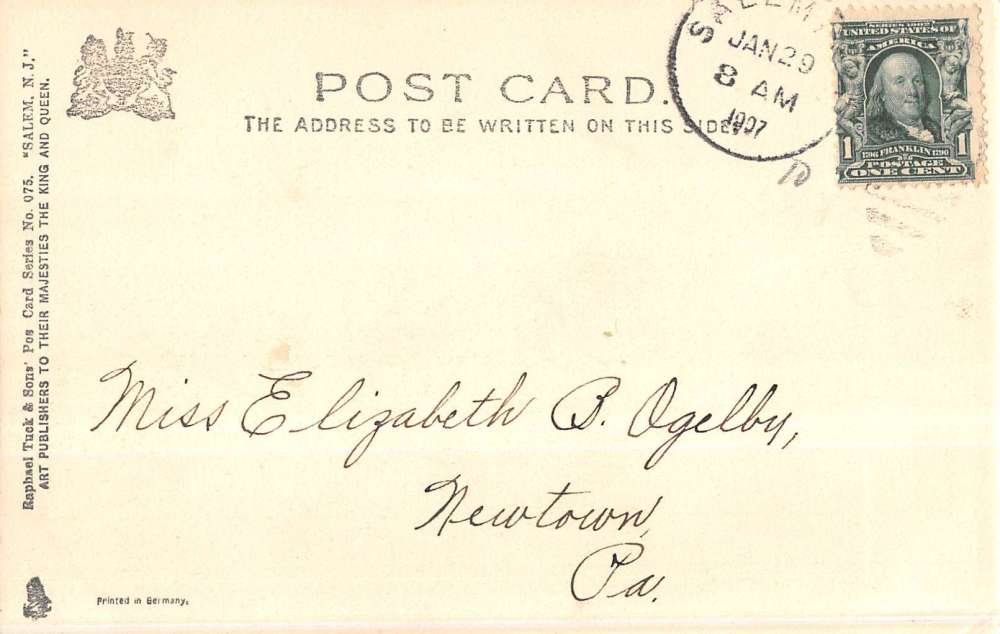 Raphael Tuck & Sons' Pos Card Series No. 075. "SALEM. N. J."
ART PUBLISHERS TO THEIR MAJESTIES THE KING AND QUEEN.
POST CARD.
THE ADDRESS TO BE WRITTEN ON THIS SIDE.
SALEM
JAN 29
8 AM
1907
SERIES 1902
UNITED STATES OF
AMERICA
1706 FRANKLIN 1790
1 1
POSTAGE
ONE CENT
Miss Elizabeth B. Ogelby,
Newtown,
Pa.
Printed in Germany.